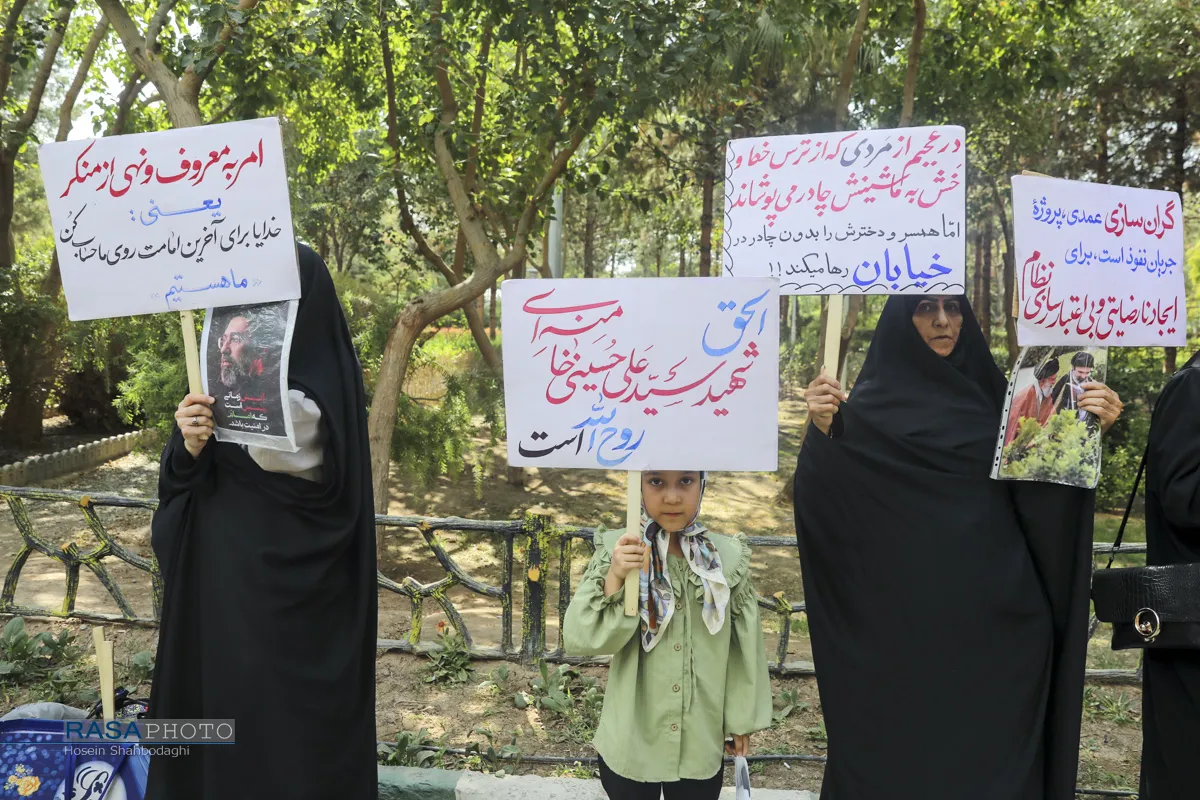 امر به معروف و نهی از منکر
یعنی:
خدایا برای آخرین امامت روی ما حساب کن
«ما هستیم»
زمانی
است
که
در امنیت باشد.
الحق
شهید سیدعلی حسینی خامنه‌ای
روح الله است
در عجبم از مَردی که از ترس خط و
خَش به ماشینش چادر می پوشاند
امّا همسر و دخترش را بدون چادر در
خیابان رها میکند!!
گران سازی عمدی، پروژهٔ
جریان نفوذ است، برای
ایجاد نارضایتی و بی اعتبارسازی نظام
RASAPHOTO
Hosein Shahbodaghi